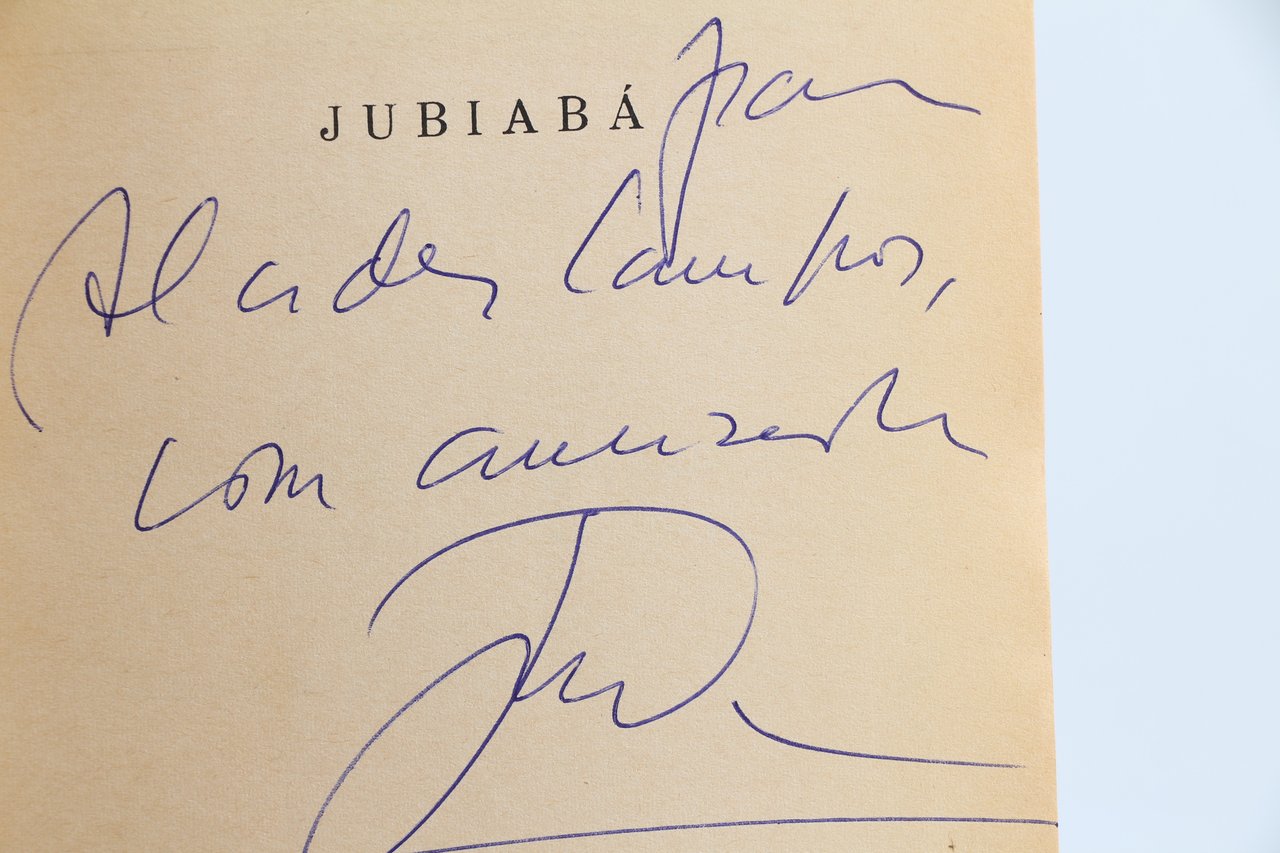 JUBIABÁ para
Alcides Campos,
com amizade